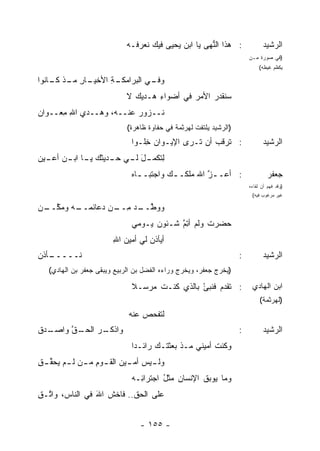 الرشيد : هذا النُّهى يا ابن يحيى فيك نعرفـه
(في صورة مـن يكظم غيظه)
وفــي البرامكــةِ الأخيــار مــذ كــانوا
سنقدر الأمر في أضواءِ هـديك لا
نــزور عنــه، وهــدي الله معــوان
(الرشيد يلتفت لهرثمة في حفاوة ظاهرة)
الرشيد : ترقب أن تـرى الإيـوان خلـوا
لتكمـلَ لـي حـديثك يـا ابـن أعـين
جعفر : أعــزَّ الله ملكــك واجتبــاه
(وقد فهم أن لقاءه غير مرغوب فيه)
ووطّــد مــن دعائمــه ومكّــن
حضرت ولم أتمَّ شـئون يـومي
أيأذن لي أمين الله
الرشيد : نـــــأذن
(يخرج جعفر، ويخرج وراءه الفضل بن الربيع ويبقى جعفر بن الهادي)
ابن الهادي : تقدم فنبئ بالذي كنـت مرسـلاً
(لهرثمة)
لتفحص عنه
الرشيد : واذكــر الحــقَّ واصــدق
وكنت أميني مـذ بعثتـك رائـدا
ولـيس أمـين القـوم مـن لـم يحقّـق
وما يوبق الإنسان مثلُ اجترائـه
على الحق.. فاخش الله في الناس، واتّـق
ـ ١٥٥ ـ